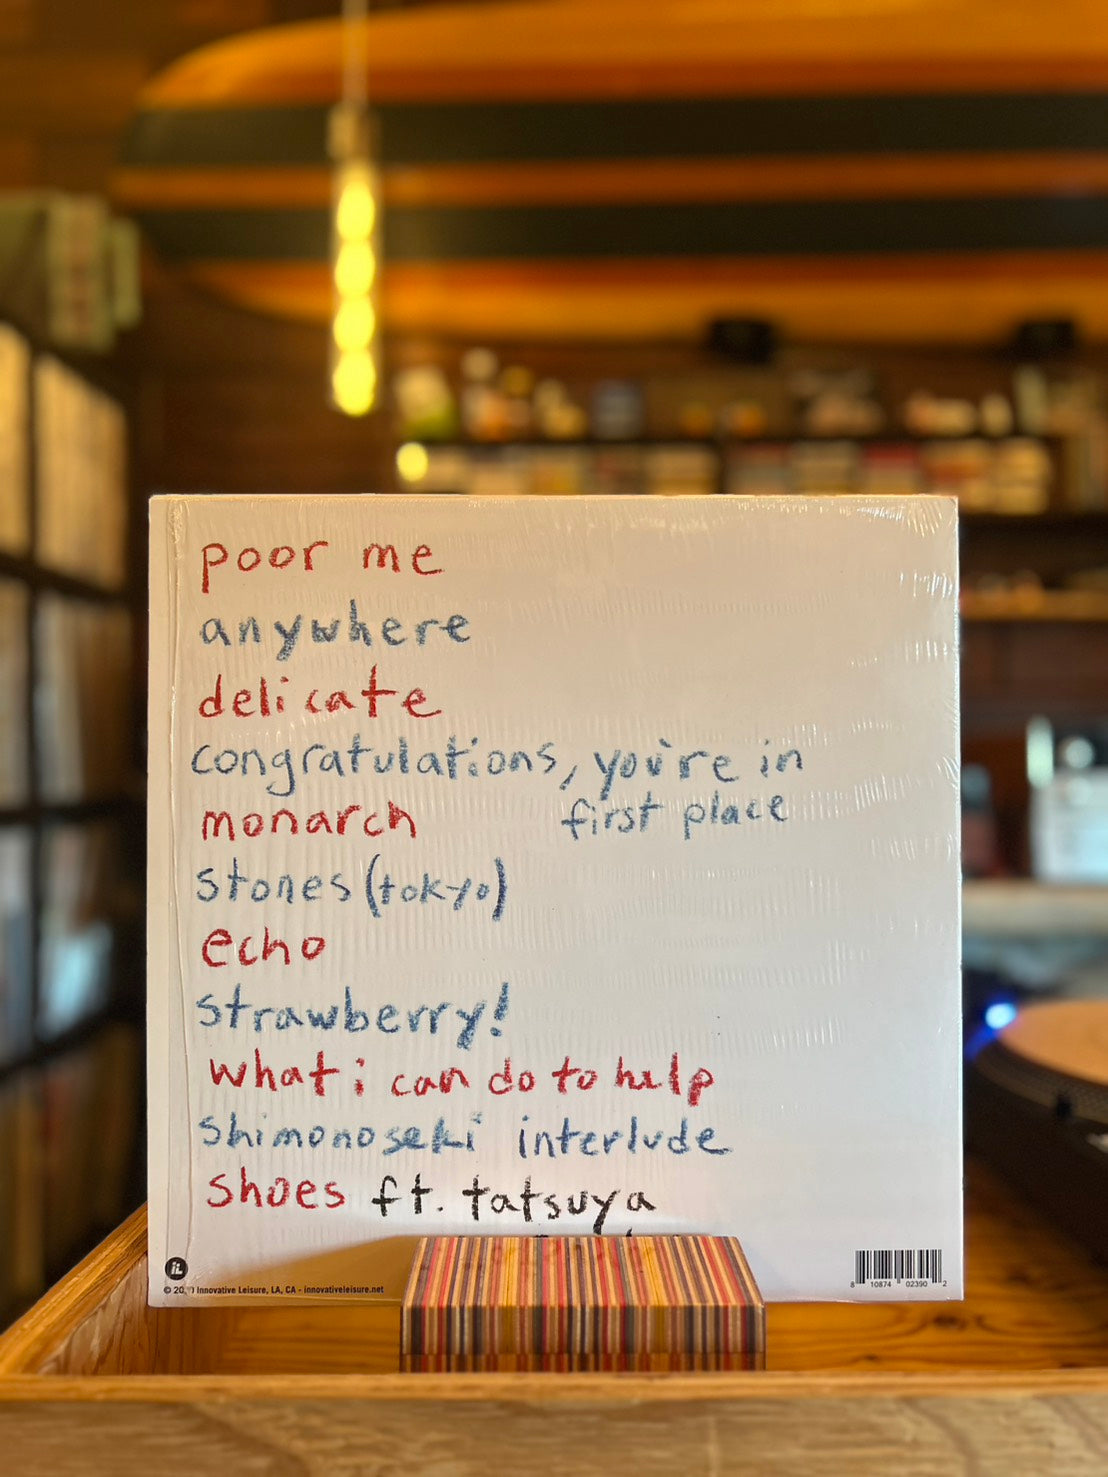 poor me
anywhere
delicate
congratulations, you're in
first place
monarch
stones (tokyo)
echo
strawberry!
what i can do to help
shimonoseki interlude
shoes ft. tatsuya
iL
Innovative Leisure, LA, CA - innovativeleisure.net
8 10874 02390 2